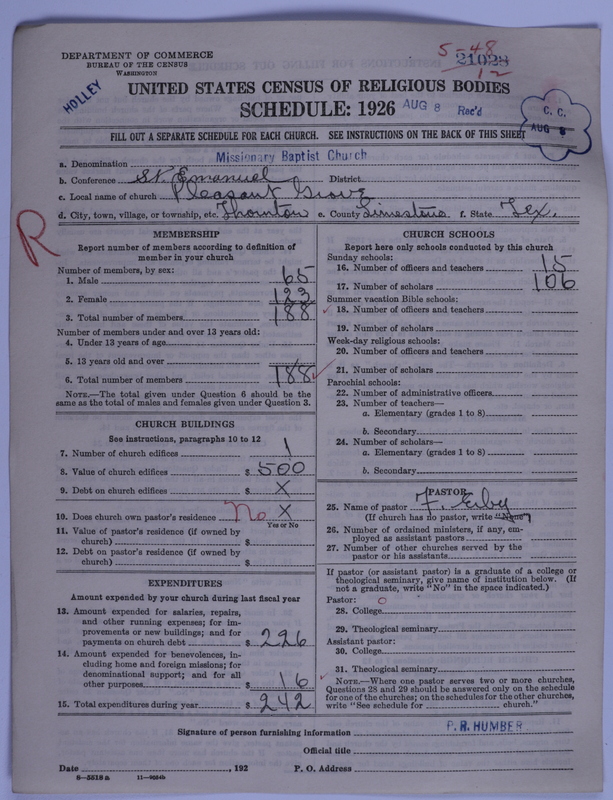 DEPARTMENT OF COMMERCE
BUREAU OF THE CENSUS
WASHINGTON
HOLLEY
5-48
21028
12
UNITED STATES CENSUS OF RELIGIOUS BODIES
SCHEDULE: 1926
AUG 8 Rec'd
C. C.
AUG 8
FILL OUT A SEPARATE SCHEDULE FOR EACH CHURCH. SEE INSTRUCTIONS ON THE BACK OF THIS SHEET
a. Denomination Missionary Baptist Church
b. Conference St. Emanuel District
c. Local name of church Pleasant Grove
d. City, town, village, or township, etc. Thornton e. County Limestone f. State Tex.
R
MEMBERSHIP
Report number of members according to definition of
member in your church
Number of members, by sex:
1. Male 65
2. Female 123
3. Total number of members 188
Number of members under and over 13 years old:
4. Under 13 years of age
5. 13 years old and over
6. Total number of members 188
NOTE.—The total given under Question 6 should be the
same as the total of males and females given under Question 3.
CHURCH BUILDINGS
See instructions, paragraphs 10 to 12
7. Number of church edifices 1
8. Value of church edifices $ 500
9. Debt on church edifices $ X
10. Does church own pastor's residence No X
Yes or No
11. Value of pastor's residence (if owned by
church) $
12. Debt on pastor's residence (if owned by
church) $
EXPENDITURES
Amount expended by your church during last fiscal year
13. Amount expended for salaries, repairs,
and other running expenses; for im-
provements or new buildings; and for
payments on church debt $ 226
14. Amount expended for benevolences, in-
cluding home and foreign missions; for
denominational support; and for all
other purposes $ 16
15. Total expenditures during year $ 242
CHURCH SCHOOLS
Report here only schools conducted by this church
Sunday schools:
16. Number of officers and teachers 15
17. Number of scholars 106
Summer vacation Bible schools:
18. Number of officers and teachers
19. Number of scholars
Week-day religious schools:
20. Number of officers and teachers
21. Number of scholars
Parochial schools:
22. Number of administrative officers
23. Number of teachers—
a. Elementary (grades 1 to 8)
b. Secondary
24. Number of scholars—
a. Elementary (grades 1 to 8)
b. Secondary
PASTOR
25. Name of pastor F.
(If church has no pastor, write "None")
26. Number of ordained ministers, if any, em-
ployed as assistant pastors
27. Number of other churches served by the
pastor or his assistants
If pastor (or assistant pastor) is a graduate of a college or
theological seminary, give name of institution below. (If
not a graduate, write "No" in the space indicated.)
Pastor: 0
28. College
29. Theological seminary
Assistant pastor:
30. College
31. Theological seminary
NOTE.—Where one pastor serves two or more churches,
Questions 28 and 29 should be answered only on the schedule
for one of the churches; on the schedules for the other churches,
write "See schedule for church."
Signature of person furnishing information P. R. HUMBER
Official title
Date , 192 P. O. Address
8—5518a 11—9024b